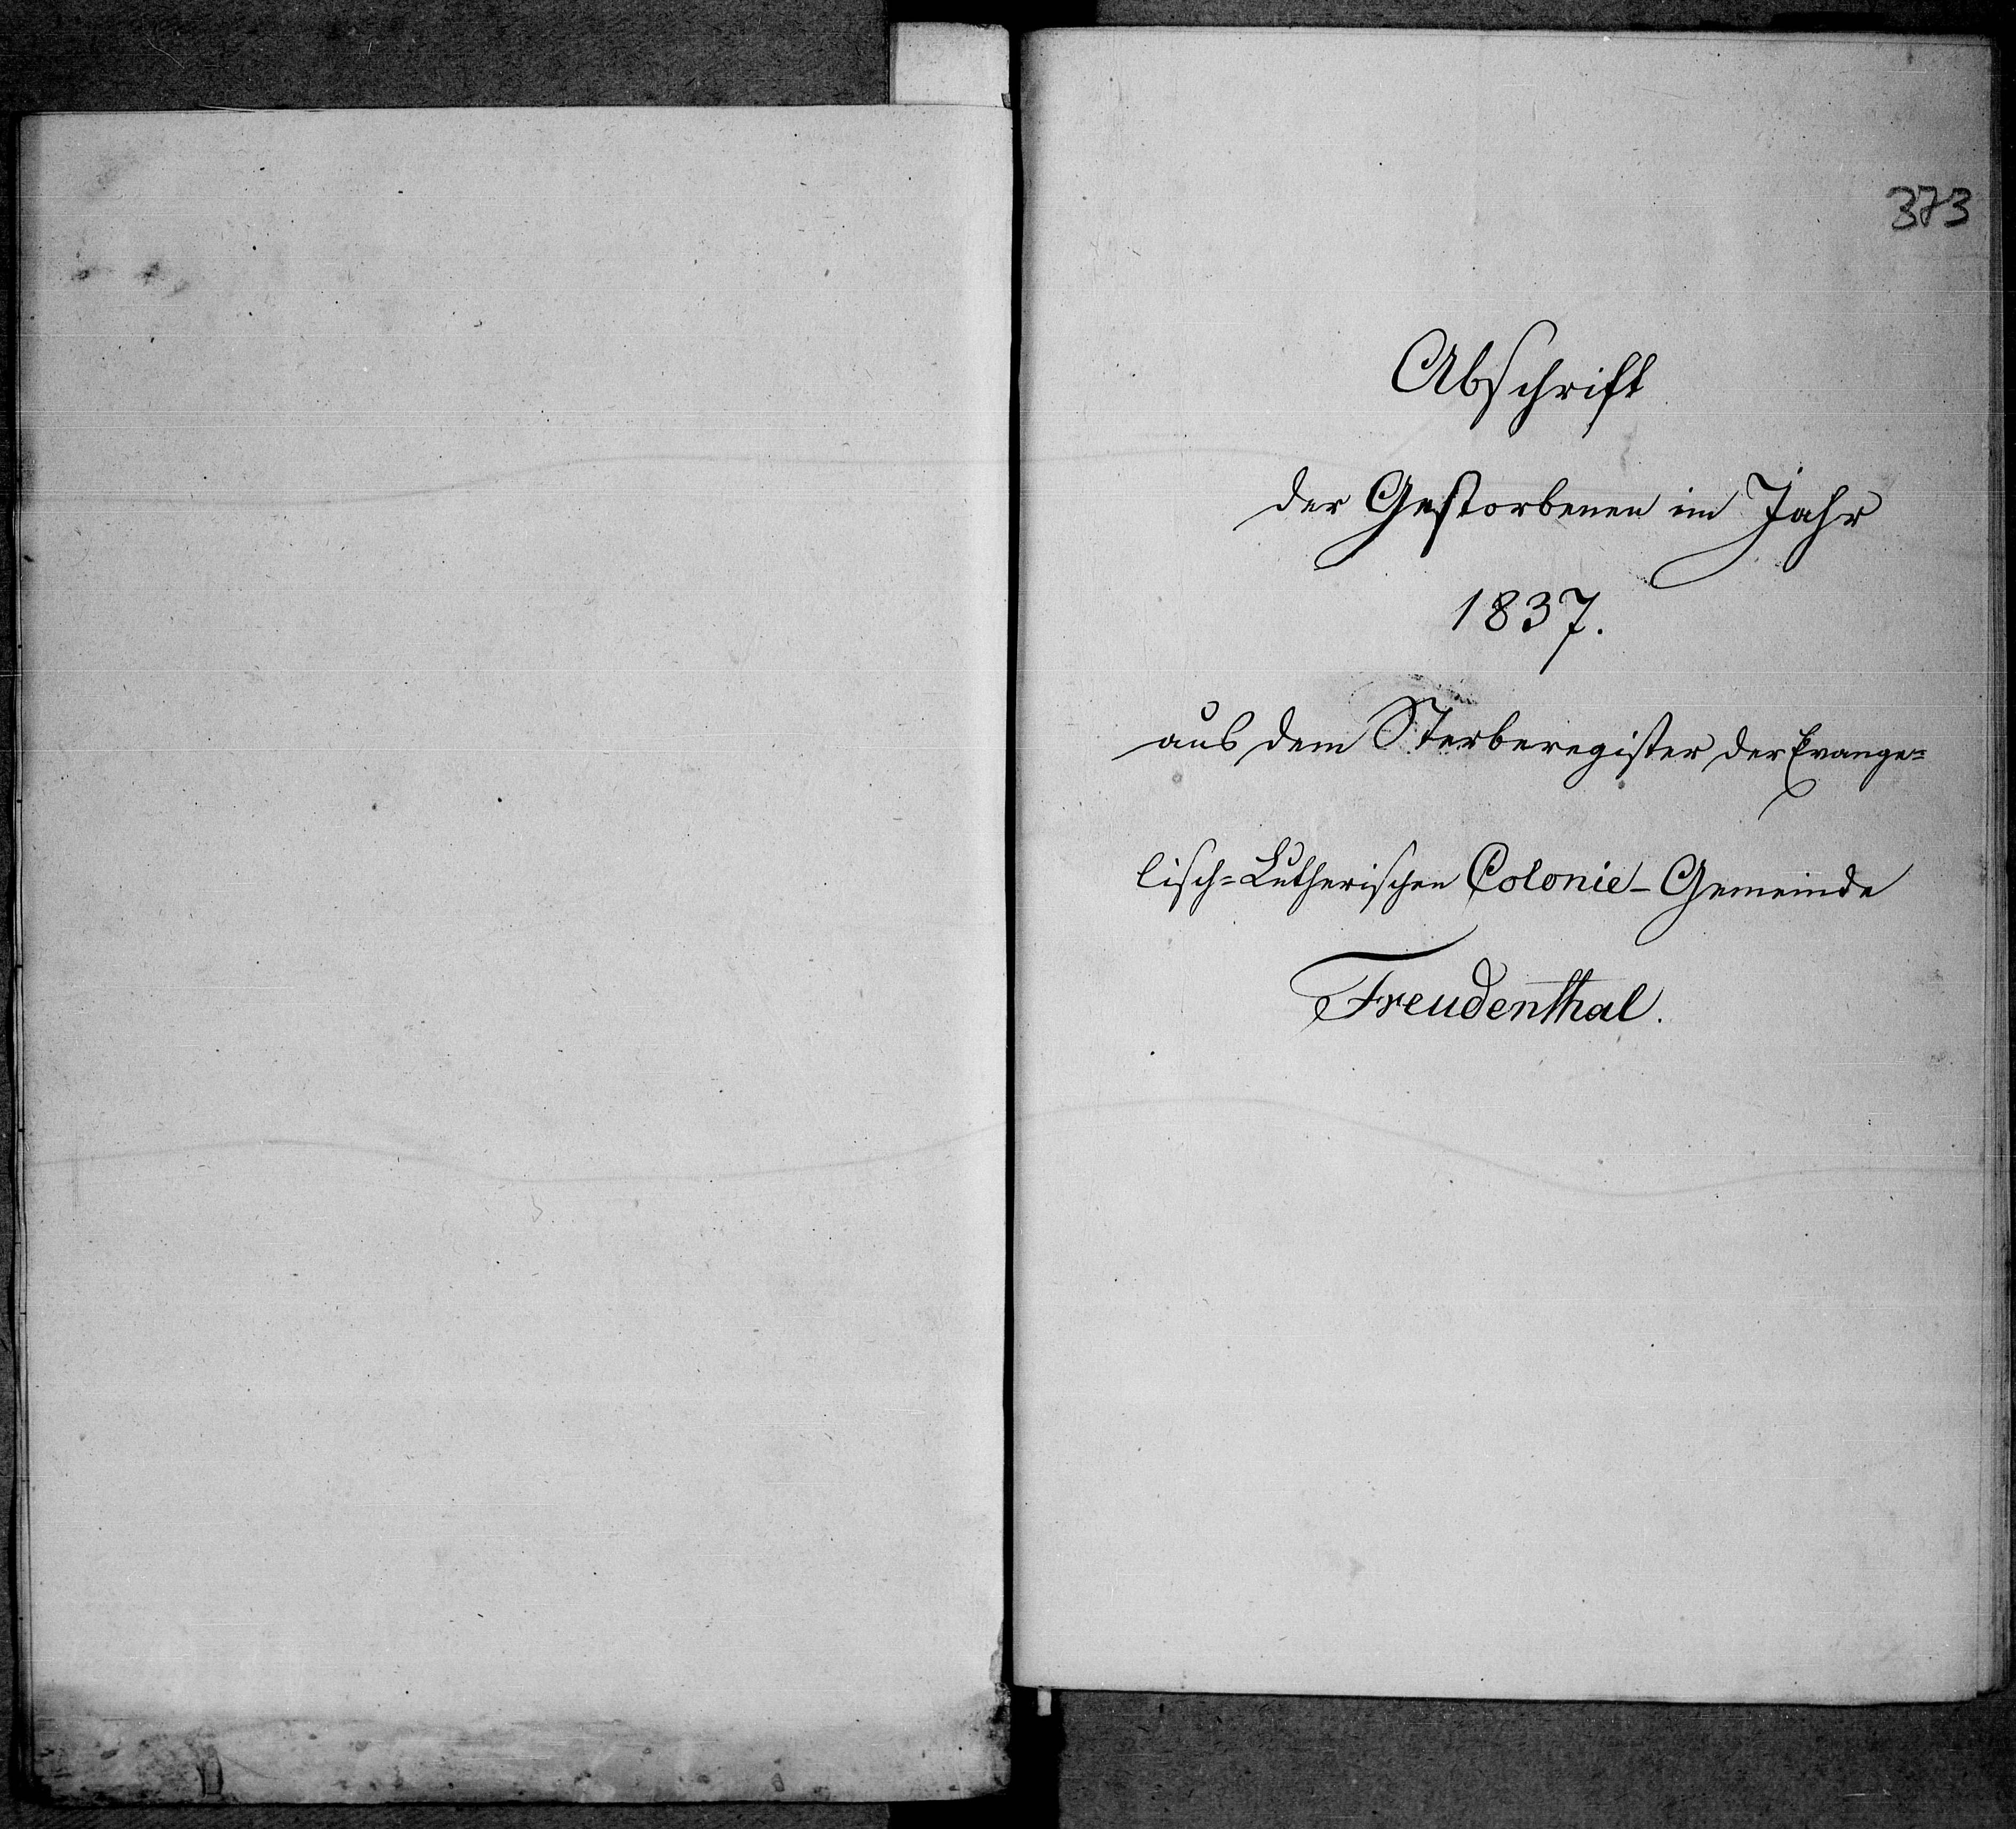 373
Abschrift
der Gestorbenen im Jahr
1837.
aus dem Sterberegister der Evange=
lisch=Lutherischen Colonie-Gemeinde
Freudenthal.